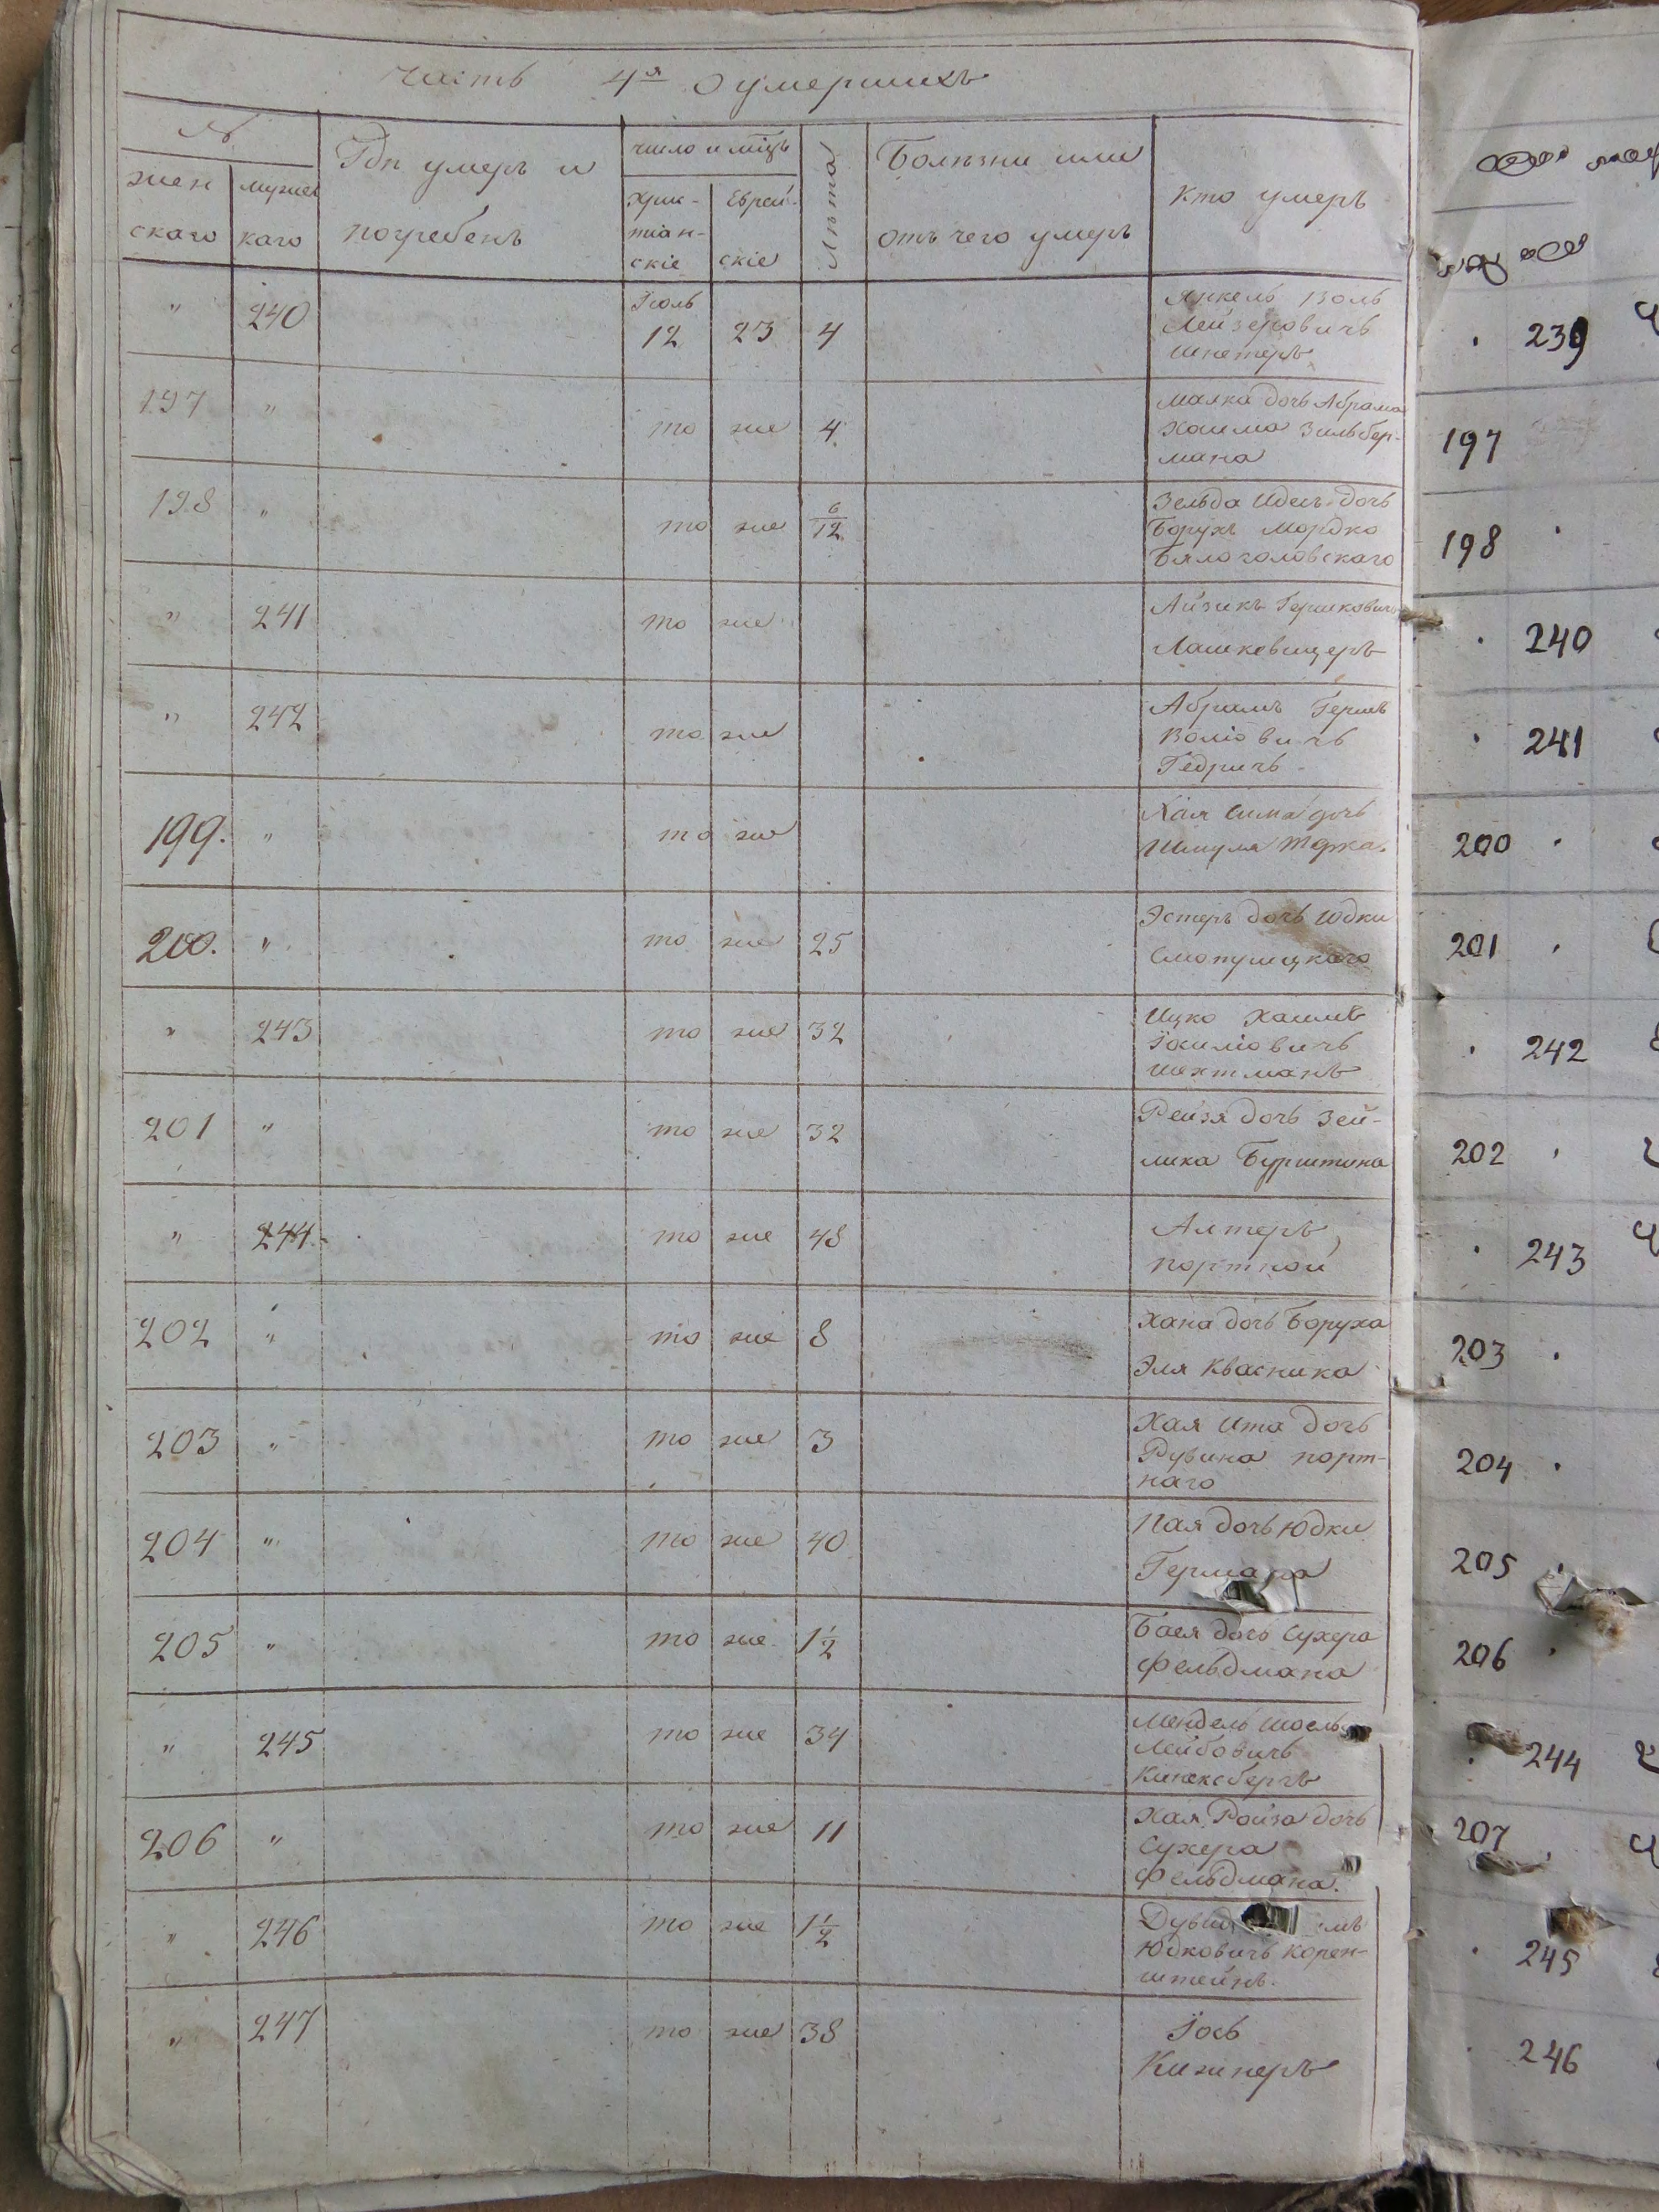 Часть 4я о умершихъ
№
женскаго
мужескаго
Гдѣ умеръ и погребенъ
число и мѣцъ
Христіанскіе
Еврейскіе
Лѣта
Болѣзни или отъ чего умеръ
кто умеръ
" 240 Іюль 12 23 4 Янкель Волъ
Лейзеровичъ
Шнеперъ
197 " то же 4 Малка дочь Абрама
Хаима Зильбер-
мана
198 " то же 6/12 Зельда Идесъ дочь
Борухъ Мордко
Бялоголовскаго
" 241 то же Айзикъ Гершковичъ
Лашковицеръ
" 242 то же Абрамъ Гершъ
Волфовичъ
Гедричъ
199. " то же Хая Сима дочь
Шмуля
200. " то же 25 Эстеръ дочь Юдки
" 243 то же 32 Ицко Хаимъ
Шехтманъ
201 " то же 32 Рейзя дочь Зей-
лика Бурштина
" 244 то же 48 Алтеръ,
портной
202 " то же 8 Хана дочь Боруха
Эля Квасника
203 " то же 3 Хая Ита дочь
Рувина порт-
наго
204 " то же 40 Пая дочь Юдки
Германа
205 " то же 1 1/2 Бася дочь Сухера
Фельдмана
" 245 то же 34 Мендель Шоель
Лейбовичъ
Кинексбергъ
206 " то же 11 Хая Ройза дочь
Сухера
Фельдмана.
" 246 то же 1 1/2 Дувид
Юдковичъ Корен-
штейнъ.
" 247 то же 38 Іось
Кижнеръ
239
197
198
240
241
200
201
242
202
243
203
204
205
206
244
207
245
246